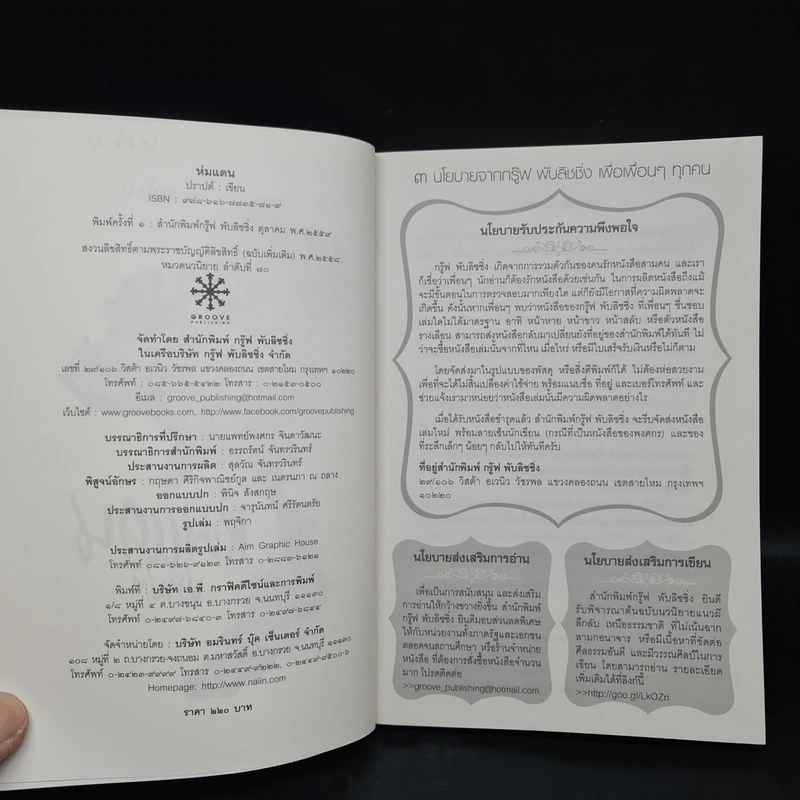 ห่มแดน
ปราปต์ : เขียน
ISBN : ๙๗๘-๖๑๖-๗๗๓๕-๗๑-๙
พิมพ์ครั้งที่ ๑ : สำนักพิมพ์กรู๊ฟ พับลิชชิ่ง ตุลาคม พ.ศ.๒๕๕๙
สงวนลิขสิทธิ์ตามพระราชบัญญัติลิขสิทธิ์ (ฉบับเพิ่มเติม) พ.ศ.๒๕๕๘
หมวดนวนิยาย ลำดับที่ ๗๐
GROOVE
PUBLISHING
จัดทำโดย สำนักพิมพ์ กรู๊ฟ พับลิชชิ่ง
ในเครือบริษัท กรู๊ฟ พับลิชชิ่ง จำกัด
เลขที่ ๒๙/๑๐๖ วิสต้า อเวนิว วัชรพล แขวงคลองถนน เขตสายไหม กรุงเทพฯ ๑๐๒๒๐
โทรศัพท์ : ๐๘๕-๖๖๕-๕๔๒๒ โทรสาร : ๐-๒๑๕๓-๐๕๐๐
อีเมล : groove_publishing@hotmail.com
เว็บไซต์ : www.groovebooks.com, http://www.facebook.com/groovepublishing
บรรณาธิการที่ปรึกษา : นายแพทย์พงศกร จินดาวัฒนะ
บรรณาธิการสำนักพิมพ์ : อรรถรัตน์ จันทรวรินทร์
ประสานงานการผลิต : สุลวัณ จันทรวรินทร์
พิสูจน์อักษร : กฤษดา ศิริกิจพาณิชย์กูล และ เนตรนภา ณ ถลาง
ออกแบบปก : พินิจ สังสกฤษ
ประสานงานการออกแบบปก : จารุนันทน์ ศรีรัตนตรัย
รูปเล่ม : พฤจิกา
ประสานงานการผลิตรูปเล่ม : Aim Graphic House
โทรศัพท์ ๐๘๑-๖๒๖-๙๑๒๓ โทรสาร : ๐-๒๘๘๓-๖๑๒๑
พิมพ์ที่ : บริษัท เอ.พี. กราฟิคดีไซน์และการพิมพ์
๑/๘ หมู่ที่ ๔ ต.บางขนุน อ.บางกรวย จ.นนทบุรี ๑๑๑๓๐
โทรศัพท์ ๐-๒๔๙๗-๖๘๔๐-๓ โทรสาร ๐-๒๔๙๗-๖๘๔๔
จัดจำหน่ายโดย : บริษัท อมรินทร์ บุ๊ค เซ็นเตอร์ จำกัด
๑๐๘ หมู่ที่ ๒ ถ.บางกรวย-จงถนอม ต.มหาสวัสดิ์ อ.บางกรวย จ.นนทบุรี ๑๑๑๓๐
โทรศัพท์ ๐-๒๔๒๓-๙๙๙๙ โทรสาร ๐-๒๔๔๙-๙๒๒๒, ๐-๒๔๔๙-๙๕๐๐-๖
Homepage: http://www.naiin.com
ราคา ๒๒๐ บาท
๓ นโยบายจากกรู๊ฟ พับลิชชิ่ง เพื่อเพื่อนๆ ทุกคน
นโยบายรับประกันความพึงพอใจ
กรู๊ฟ พับลิชชิ่ง เกิดจากการรวมตัวกันของคนรักหนังสือสามคน และเรา
ก็เชื่อว่าเพื่อนๆ นักอ่านก็ต้องรักหนังสือด้วยเช่นกัน ในการผลิตหนังสือถึงแม้
จะมีขั้นตอนในการตรวจสอบมากเพียงใด แต่ก็ยังมีโอกาสที่ความผิดพลาดจะ
เกิดขึ้น ดังนั้นหากเพื่อนๆ พบว่าหนังสือของกรู๊ฟ พับลิชชิ่ง ที่เพื่อนๆ ชื่นชอบ
เล่มใดไม่ได้มาตรฐาน อาทิ หน้าหาย หน้าขาว หน้าสลับ หรือตัวหนังสือ
รางเลือน สามารถส่งหนังสือกลับมาเปลี่ยนยังที่อยู่ของสำนักพิมพ์ได้ทันที ไม่
ว่าจะซื้อหนังสือเล่มนั้นจากที่ไหน เมื่อไหร่ หรือมีใบเสร็จรับเงินหรือไม่ก็ตาม
โดยจัดส่งมาในรูปแบบของพัสดุ หรือสิ่งตีพิมพ์ก็ได้ ไม่ต้องห่อสวยงาม
เพื่อที่จะได้ไม่สิ้นเปลืองค่าใช้จ่าย พร้อมแนบชื่อ ที่อยู่ และเบอร์โทรศัพท์ และ
ช่วยแจ้งเรามาหน่อยว่าหนังสือเล่มนั้นมีความผิดพลาดอย่างไร
เมื่อได้รับหนังสือชำรุดแล้ว สำนักพิมพ์กรู๊ฟ พับลิชชิ่ง จะรีบจัดส่งหนังสือ
เล่มใหม่ พร้อมลายเซ็นนักเขียน (กรณีที่เป็นหนังสือของพงศกร) และของ
ที่ระลึกเล็กๆ น้อยๆ กลับไปให้ทันทีครับ
ที่อยู่สำนักพิมพ์ กรู๊ฟ พับลิชชิ่ง
๒๙/๑๐๖ วิสต้า อเวนิว วัชรพล แขวงคลองถนน เขตสายไหม กรุงเทพฯ
๑๐๒๒๐
นโยบายส่งเสริมการอ่าน
เพื่อเป็นการสนับสนุน และส่งเสริม
การอ่านให้กว้างขวางยิ่งขึ้น สำนักพิมพ์
กรู๊ฟ พับลิชชิ่ง ยินดีมอบส่วนลดพิเศษ
ให้กับหน่วยงานทั้งภาครัฐและเอกชน
ตลอดจนสถานศึกษา หรือร้านจำหน่าย
หนังสือ ที่ต้องการสั่งซื้อหนังสือจำนวน
มาก โปรดติดต่อ
>>groove_publishing@hotmail.com
นโยบายส่งเสริมการเขียน
สำนักพิมพ์กรู๊ฟ พับลิชชิ่ง ยินดี
รับพิจารณาต้นฉบับนวนิยายแนวผี
ลึกลับ เหนือธรรมชาติ ที่ไม่เน้นฉาก
ลามกอนาจาร หรือมีเนื้อหาที่ขัดต่อ
ศีลธรรมอันดี และมีวรรณศิลป์ในการ
เขียน โดยสามารถอ่าน รายละเอียด
เพิ่มเติมได้ที่ลิงก์นี้
>>http://goo.gl/LkOZri